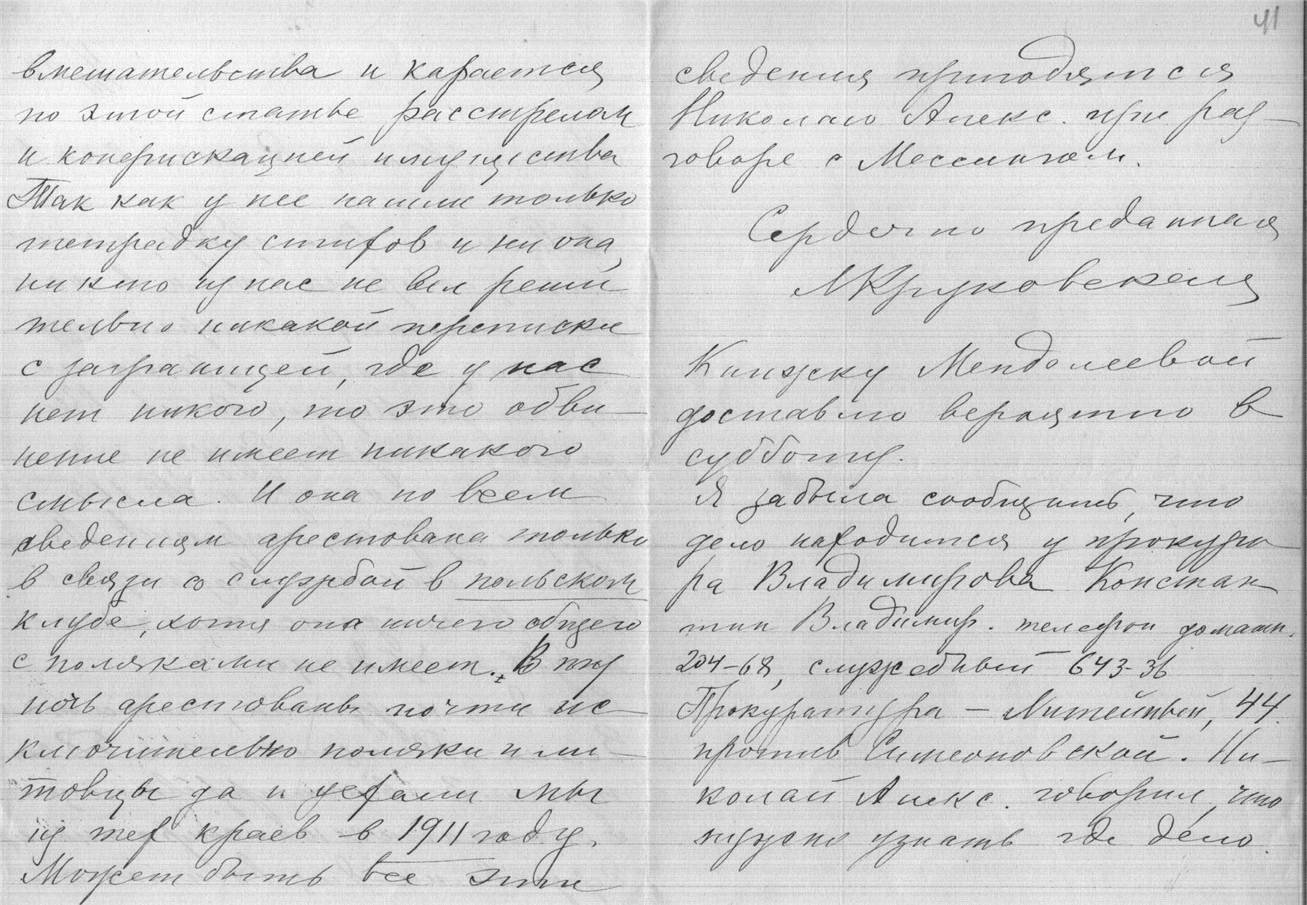 вмешательства и карается
по этой статье расстрелом
и конфискацией имущества
Так как у нее нашли только
тетрадку стихов и ни она,
никто из нас не вел реши
тельно никакой переписки
с заграницей, где у нас
нет никого, то это обви—
нение не имеет никакого
смысла. И она по всем
сведениям арестована только
в связи со службой в польском
клубе, хотя она ничего общего
с поляками не имеет. В ту
ночь арестованы почти ис
ключительно поляки и ли—
товцы да и уехали мы
из тех краев в 1911 году.
Может быть все эти
41
сведения пригодятся
Николаю Алекс. при раз—
говоре с Мессингом.
Сердечно преданная
МКруковская
Книжку Менделеевой
доставлю вероятно в
субботу.
Я забыла сообщить, что
дело находится у прокуро
ра Владимирова Констан
тин Владимир. телефон домашн.
204-68, служебный 643-36
Прокуратура — Литейный, 44.
против Симеоновской. Ни—
колай Алекс. говорил, что
нужно узнать где дело.